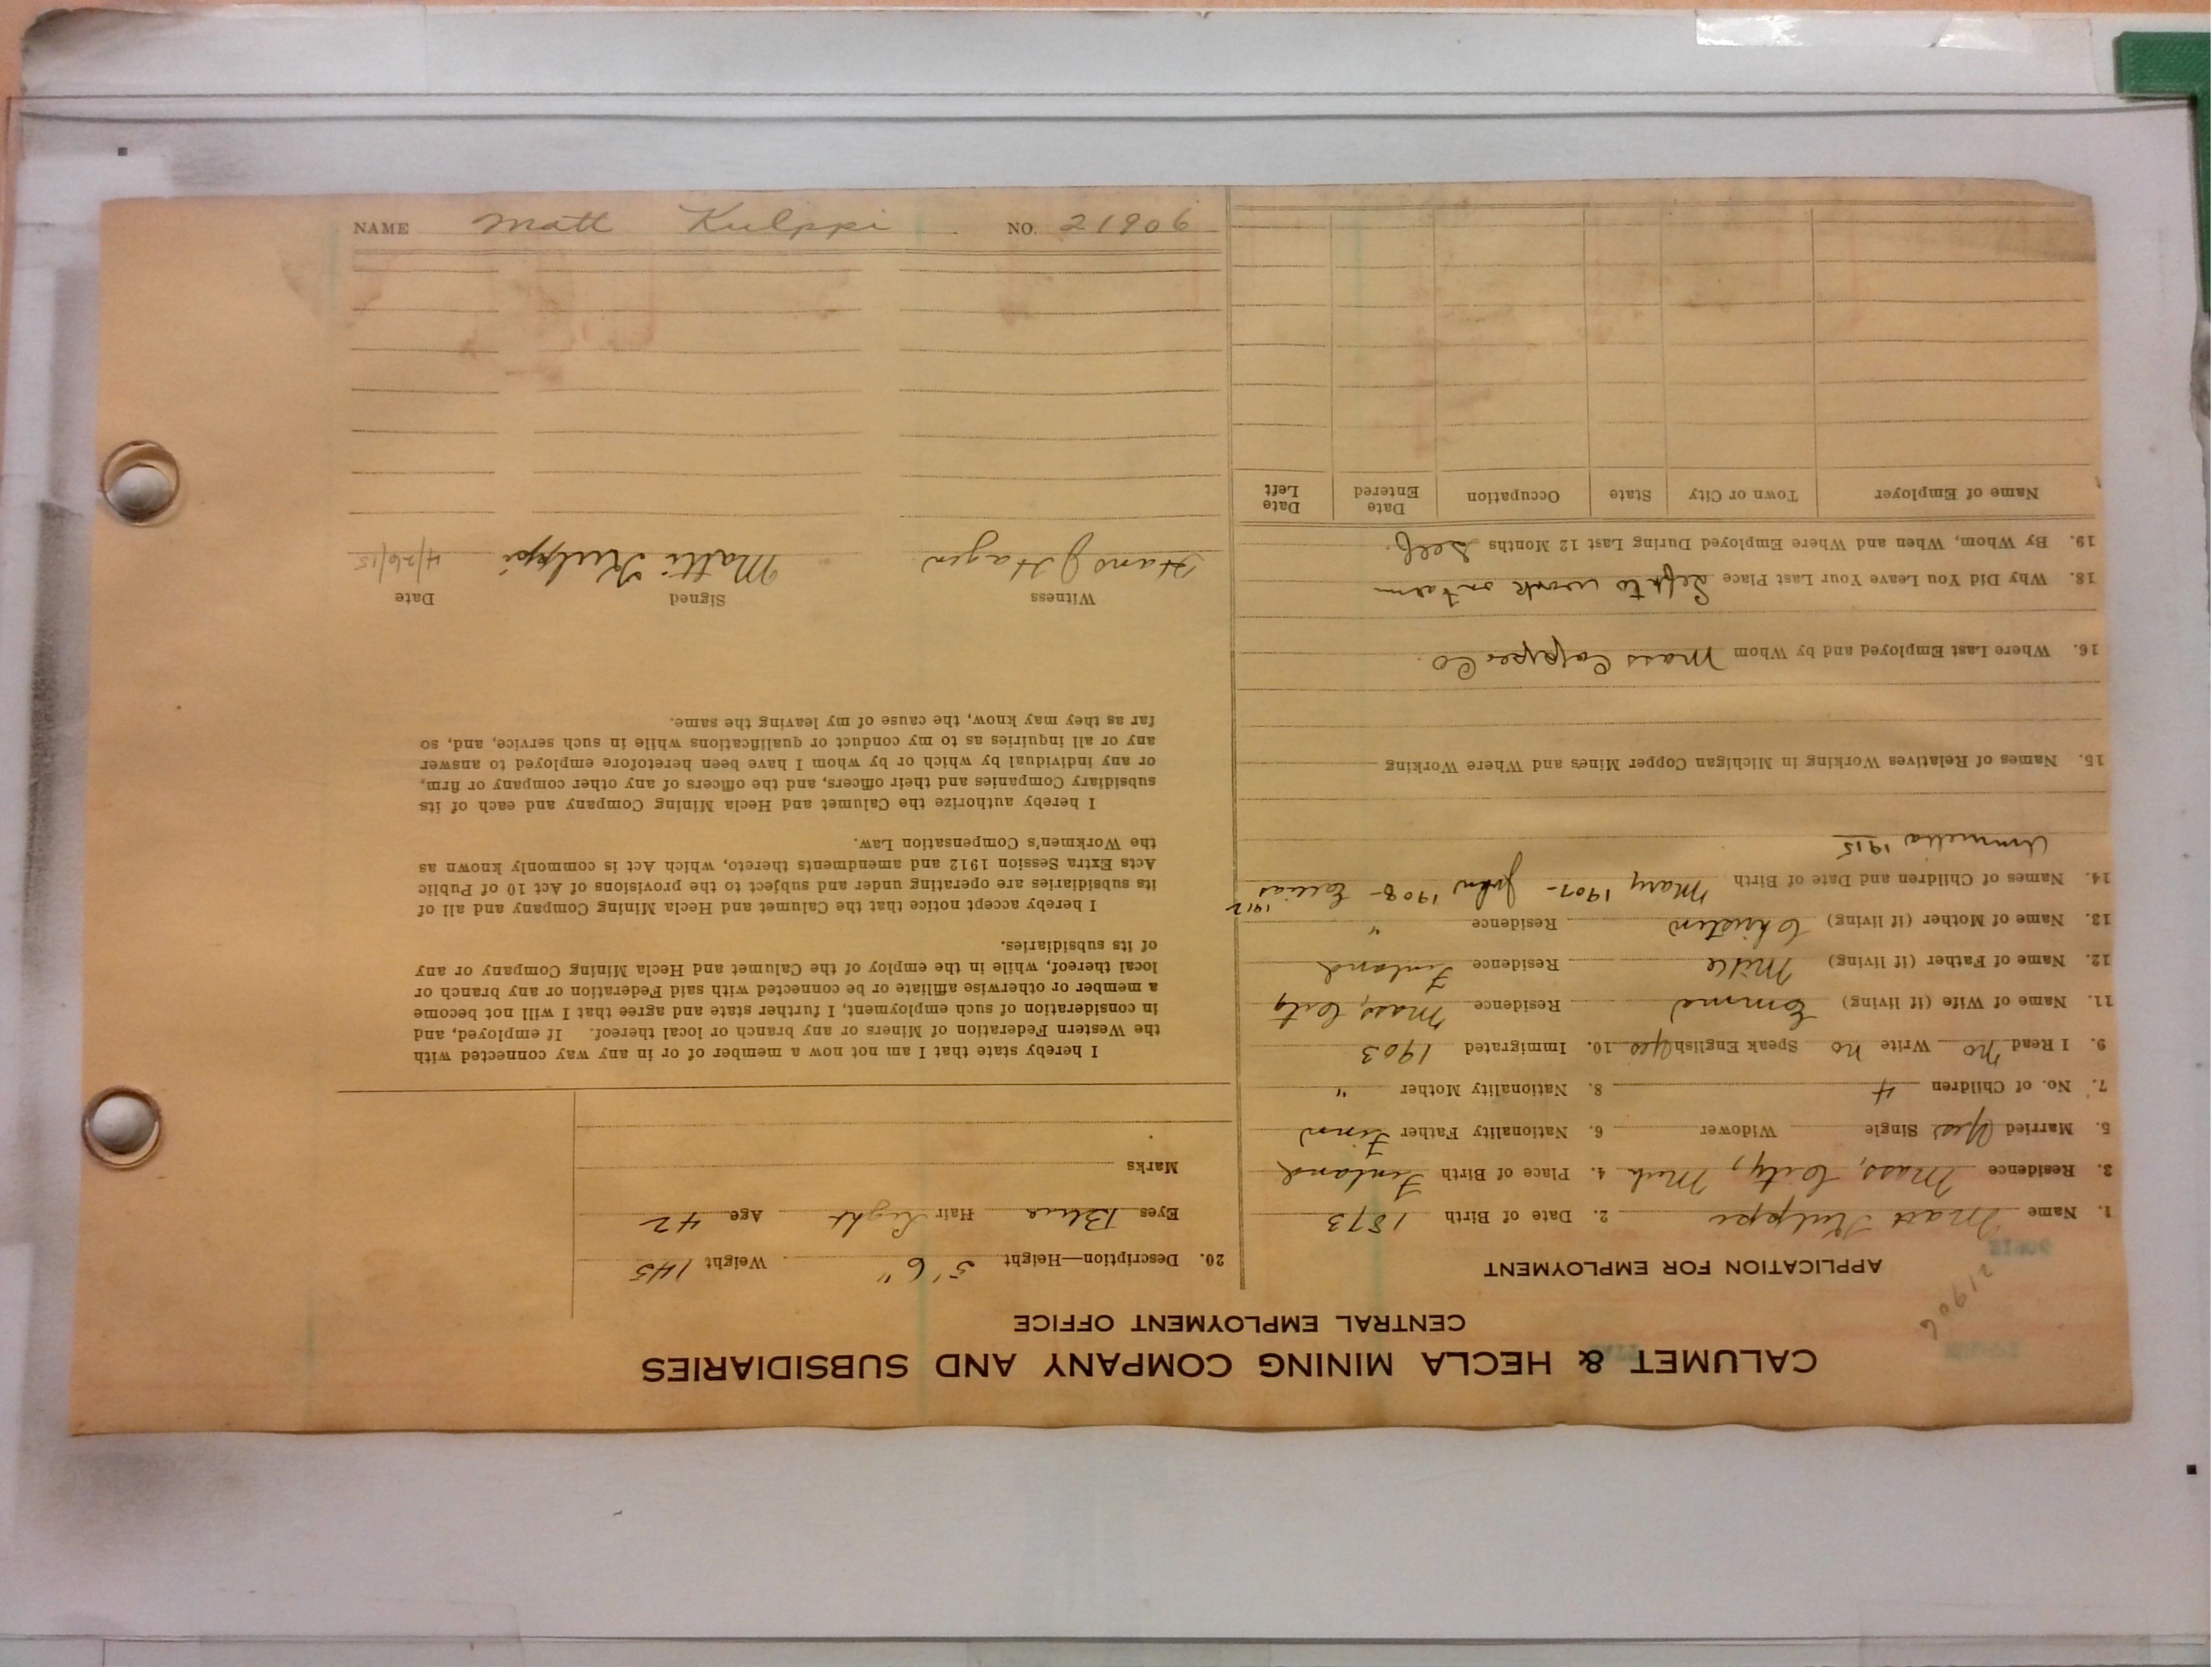 CALUMET & HECLA MINING COMPANY AND SUBSIDIARIES
CENTRAL EMPLOYMENT OFFICE
21906
APPLICATION FOR EMPLOYMENT
1. Name Matt Kulppi 2. Date of Birth 1873
3. Residence Mass, City, Mich 4. Place of Birth Finland
5. Married Yes Single Widower 6. Nationality Father Finn
7. No. of Children 4 8. Nationality Mother "
9. I Read no Write no Speak English Yes 10. Immigrated 1903
11. Name of Wife (if living) Emma Residence Mass, City
12. Name of Father (if living) Mike Residence Finland
13. Name of Mother (if living) Residence "
14. Names of Children and Date of Birth Mary 1907- John 1908- 1912
1915
15. Names of Relatives Working in Michigan Copper Mines and Where Working
16. Where Last Employed and by Whom Mass Copper Co.
18. Why Did You Leave Your Last Place Left to work on Farm
19. By Whom, When and Where Employed During Last 12 Months Self.
Name of Employer Town or City State Occupation Date Entered Date Left
20. Description—Height 5' 6" Weight 145
Eyes Blue Hair Light Age 42
Marks
I hereby state that I am not now a member of or in any way connected with
the Western Federation of Miners or any branch or local thereof. If employed, and
in consideration of such employment, I further state and agree that I will not become
a member or otherwise affiliate or be connected with said Federation or any branch or
local thereof, while in the employ of the Calumet and Hecla Mining Company or any
of its subsidiaries.
I hereby accept notice that the Calumet and Hecla Mining Company and all of
its subsidiaries are operating under and subject to the provisions of Act 10 of Public
Acts Extra Session 1912 and amendments thereto, which Act is commonly known as
the Workmen's Compensation Law.
I hereby authorize the Calumet and Hecla Mining Company and each of its
subsidiary Companies and their officers, and the officers of any other company or firm,
or any individual by which or by whom I have been heretofore employed to answer
any or all inquiries as to my conduct or qualifications while in such service, and, so
far as they may know, the cause of my leaving the same.
Witness Signed Date
Hans J Hagen Matti Kulppi 4/26/15
NAME Matt Kulppi NO. 21906